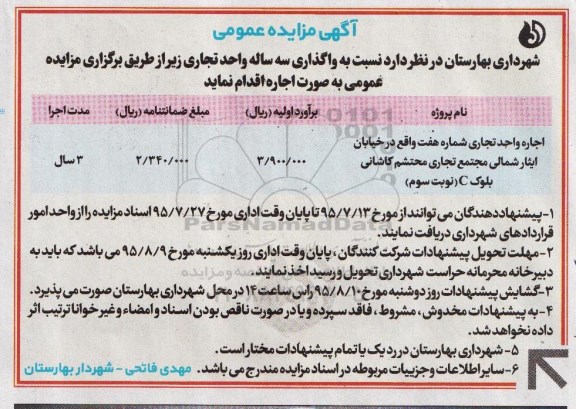 آگهی مزایده عمومی
شهرداری بهارستان در نظر دارد نسبت به واگذاری سه ساله واحد تجاری زیر از طریق برگزاری مزایده
عمومی به صورت اجاره اقدام نماید
نام پروژه برآورد اولیه (ریال) مبلغ ضمانتنامه (ریال) مدت اجرا
اجاره واحد تجاری شماره هفت واقع در خیابان
ایثار شمالی مجتمع تجاری محتشم کاشانی
بلوک C (نوبت سوم)
۳/۹۰۰/۰۰۰ ۲/۳۴۰/۰۰۰ ۳ سال
۱-پیشنهاددهندگان می توانند از مورخ ۹۵/۷/۱۳ تا پایان وقت اداری مورخ ۹۵/۷/۲۷ اسناد مزایده را از واحد امور
قراردادهای شهرداری دریافت نمایند.
۲-مهلت تحویل پیشنهادات شرکت کنندگان ، پایان وقت اداری روز یکشنبه مورخ ۹۵/۸/۹ می باشد که باید به
دبیرخانه محرمانه حراست شهرداری تحویل و رسید اخذ نمایند.
۳-گشایش پیشنهادات روز دوشنبه مورخ ۹۵/۸/۱۰ راس ساعت ۱۴ در محل شهرداری بهارستان صورت می پذیرد.
۴-به پیشنهادات مخدوش ، مشروط ، فاقد سپرده و یا در صورت ناقص بودن اسناد و امضاء و غیر خوانا ترتیب اثر
داده نخواهد شد.
۵- شهرداری بهارستان در رد یک یا تمام پیشنهادات مختار است.
۶-سایر اطلاعات و جزییات مربوطه در اسناد مزایده مندرج می باشد. مهدی فاتحی - شهردار بهارستان
ParsNamadData